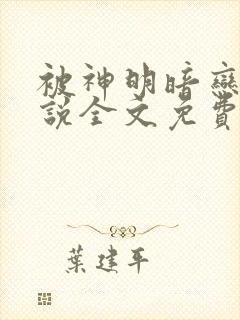 被神明暗戀
說全文免費
葉建平